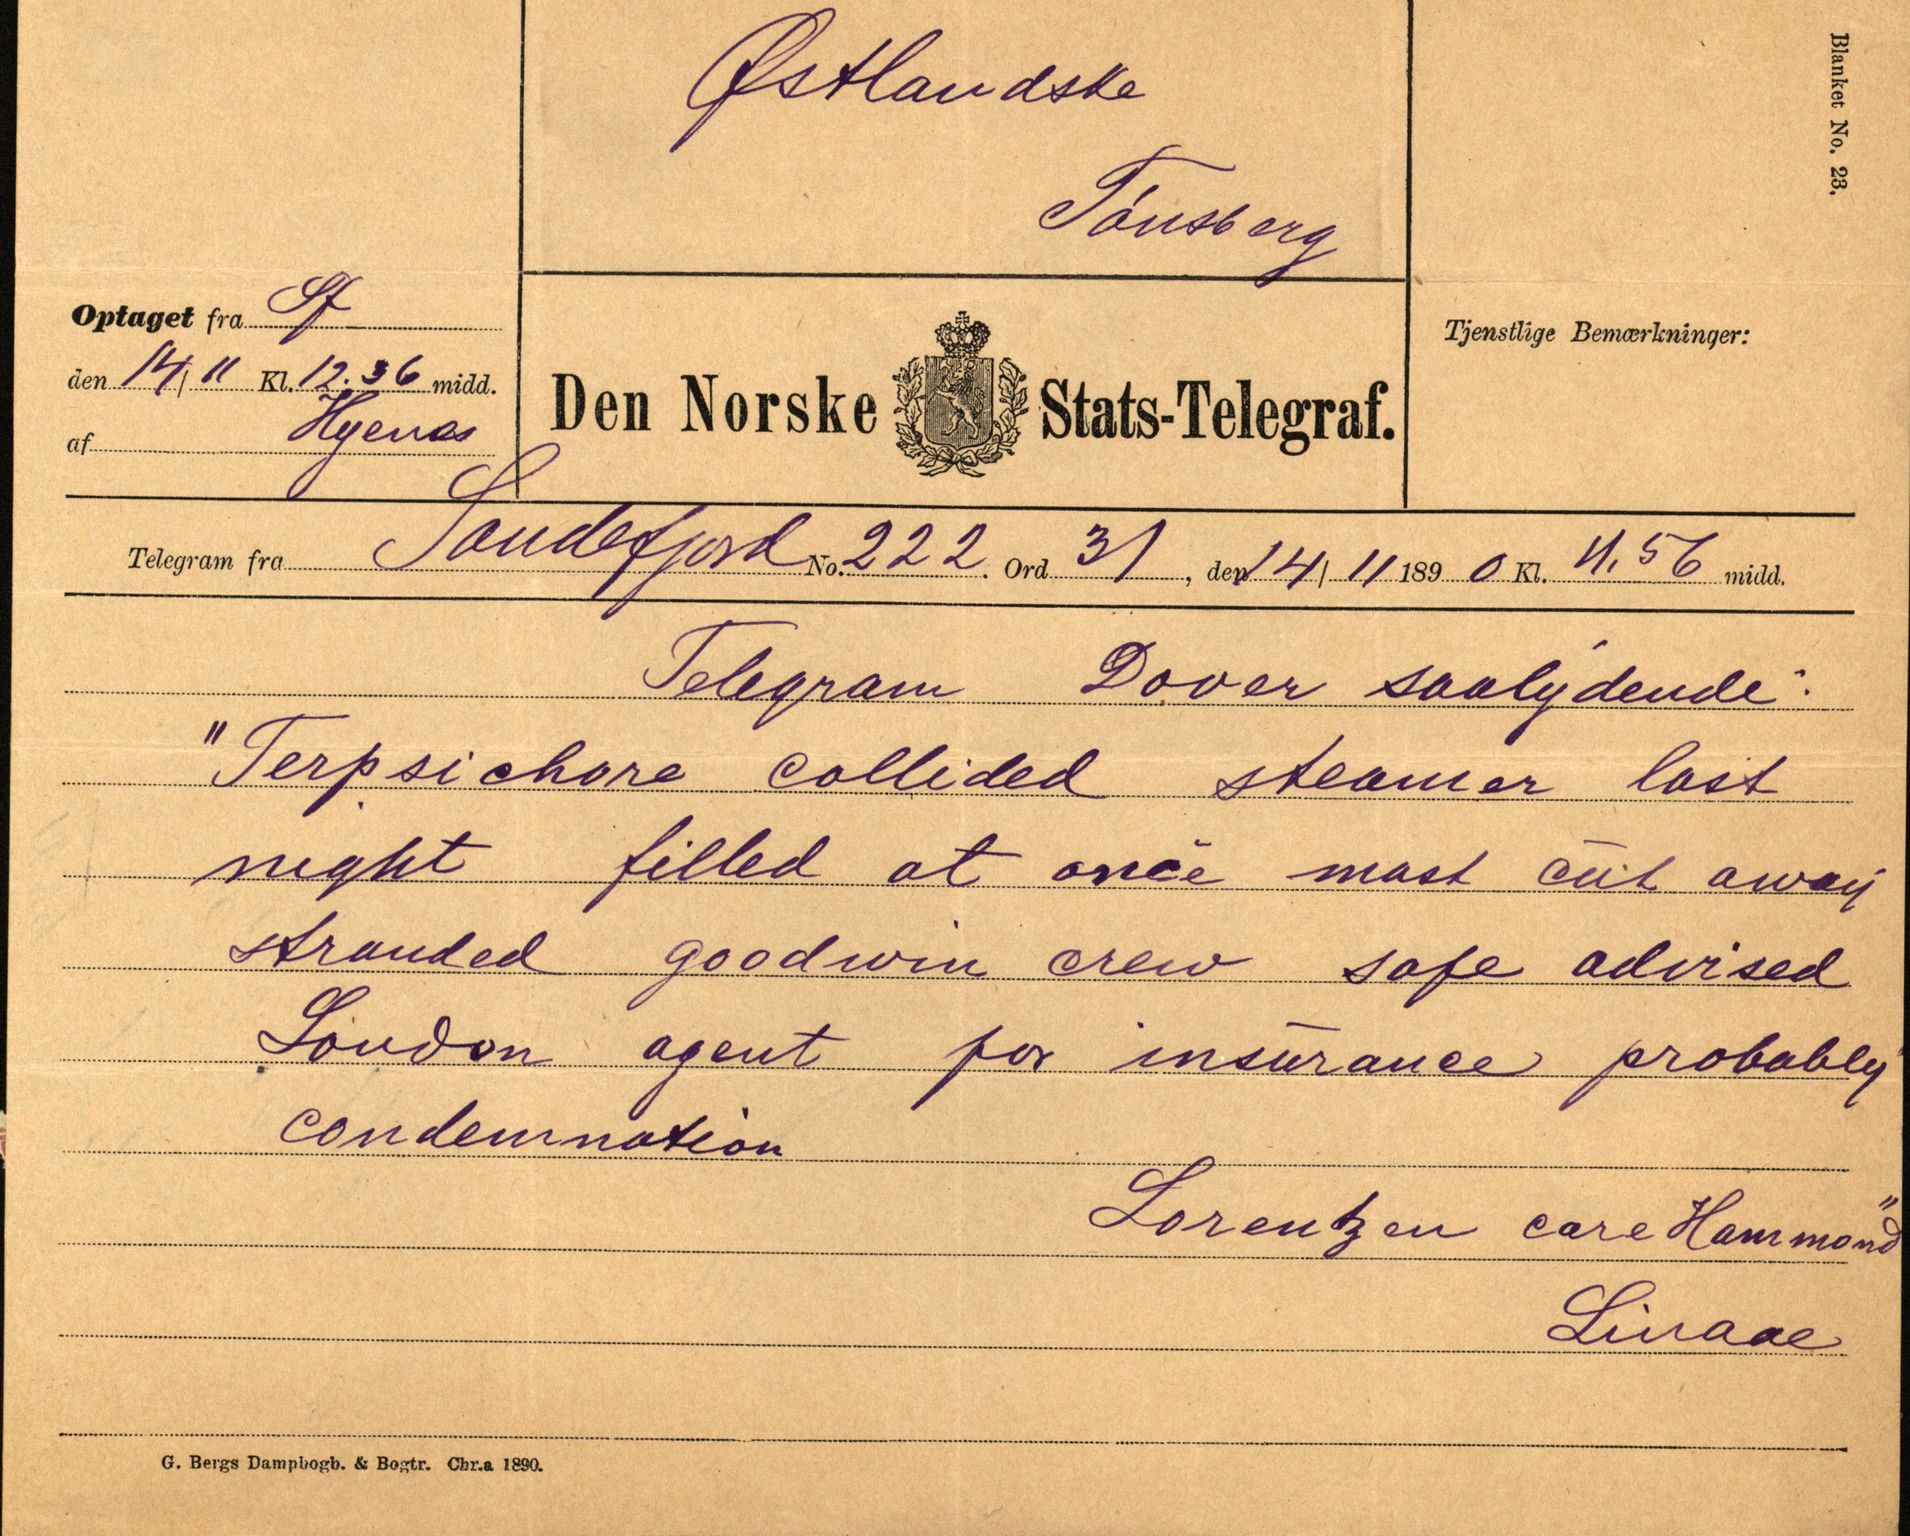 Østlandske
Tønsberg
Blanket No. 23.
Optaget fra Sf
den 14/11 Kl. 12.36 midd.
af
Den Norske Stats-Telegraf.
Tjenstlige Bemærkninger:
Telegram fra Sandefjord No. 222. Ord 31, den 14/11 1890 Kl. 11.56 midd.
Telegram Dover saalydende:
"Terpsichore collided steamer last
night filled at once mast cut away
stranded goodwin crew safe advised
London agent for insurance probably
condemnation
Lorentzen care Hammond"
Linaae
G. Bergs Dampbogb. & Bogtr. Chr.a 1890.